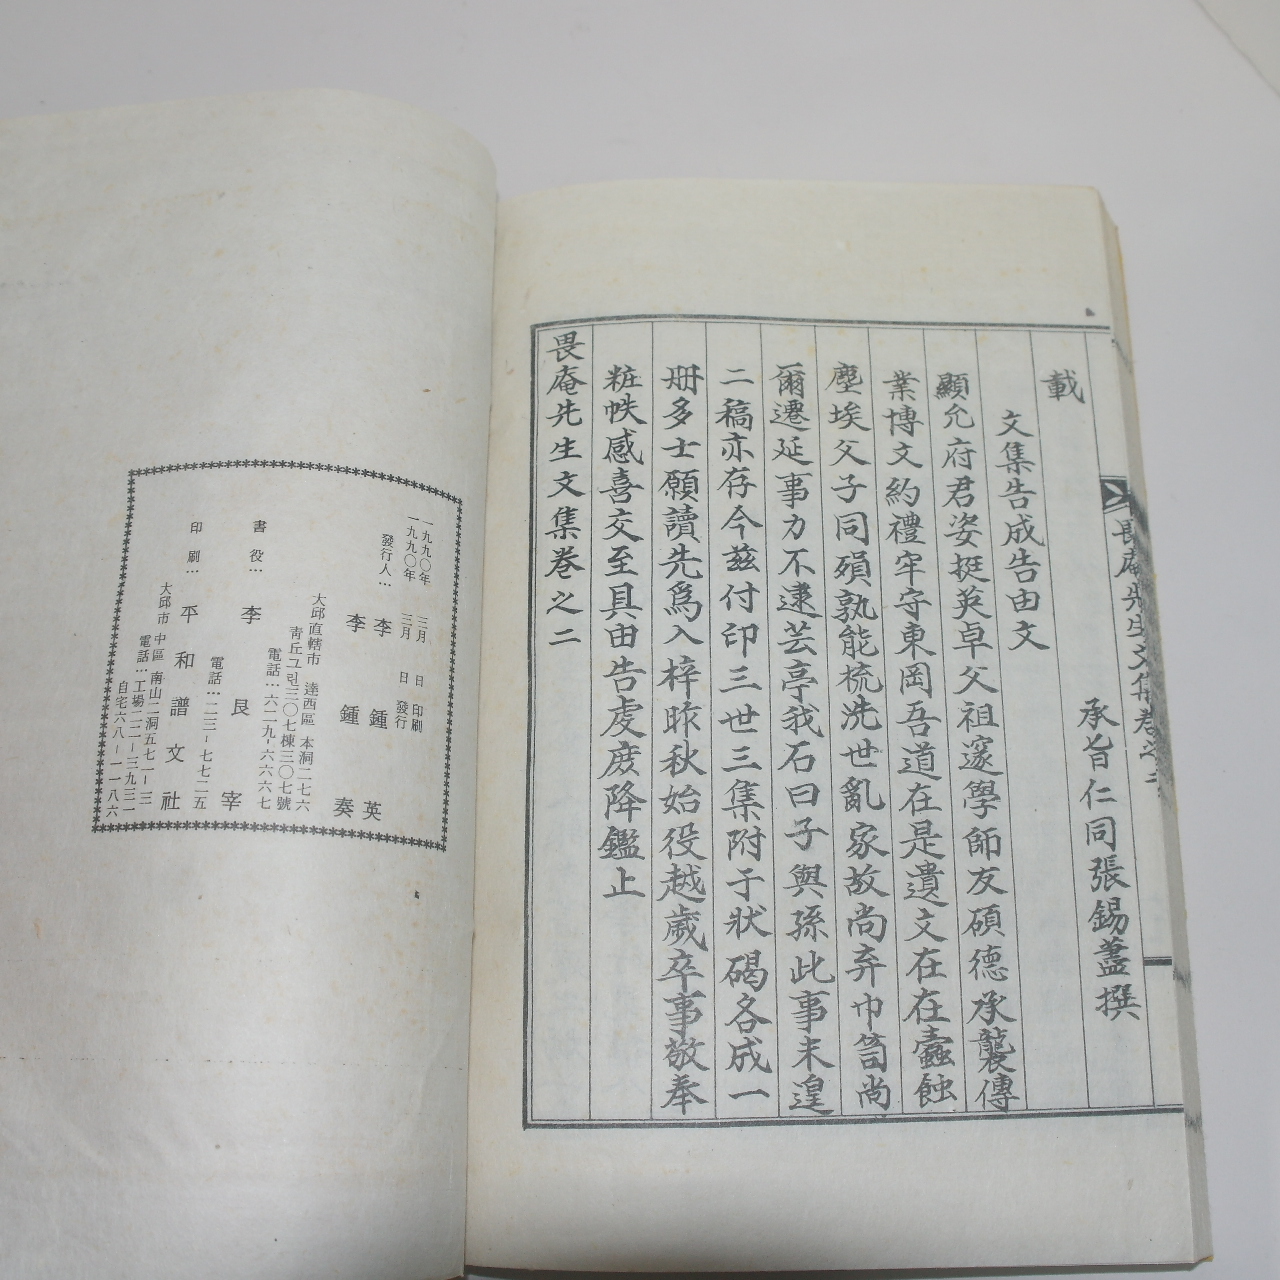 畏庵先生文集卷之二
承旨仁同張錫藎撰
載
文集告成告由文
顯允府君姿挺英卓父祖邃學師友碩德承襲傳
業博文約禮牢守東岡吾道在是遺文在在蠹蝕
塵埃父子同殞孰能梳洗世亂家故尚弃巾笥尚
爾遷延事力不逮芸亭我石曰子與孫此事未遑
二稿亦存今玆付印三世三集附于狀碣各成一
册多士願讀先爲入梓昨秋始役越歲卒事敬奉
粧帙感喜交至具由告虔庶降鑑止
畏庵先生文集卷之二
一九九〇年 三月 日 印刷
一九九〇年 三月 日 發行
發行人… 李鍾英
李鍾奏
大邱直轄市 達西區 本洞二七六
靑丘그린三〇七棟三〇七號
電話…六二九-六六六七
書役… 李艮宰
電話…二二三-七七二五
印刷… 平和譜文社
大邱市 中區 南山二洞五七一-三
電話…工場二二一-三九三二
自宅六八-一一八六